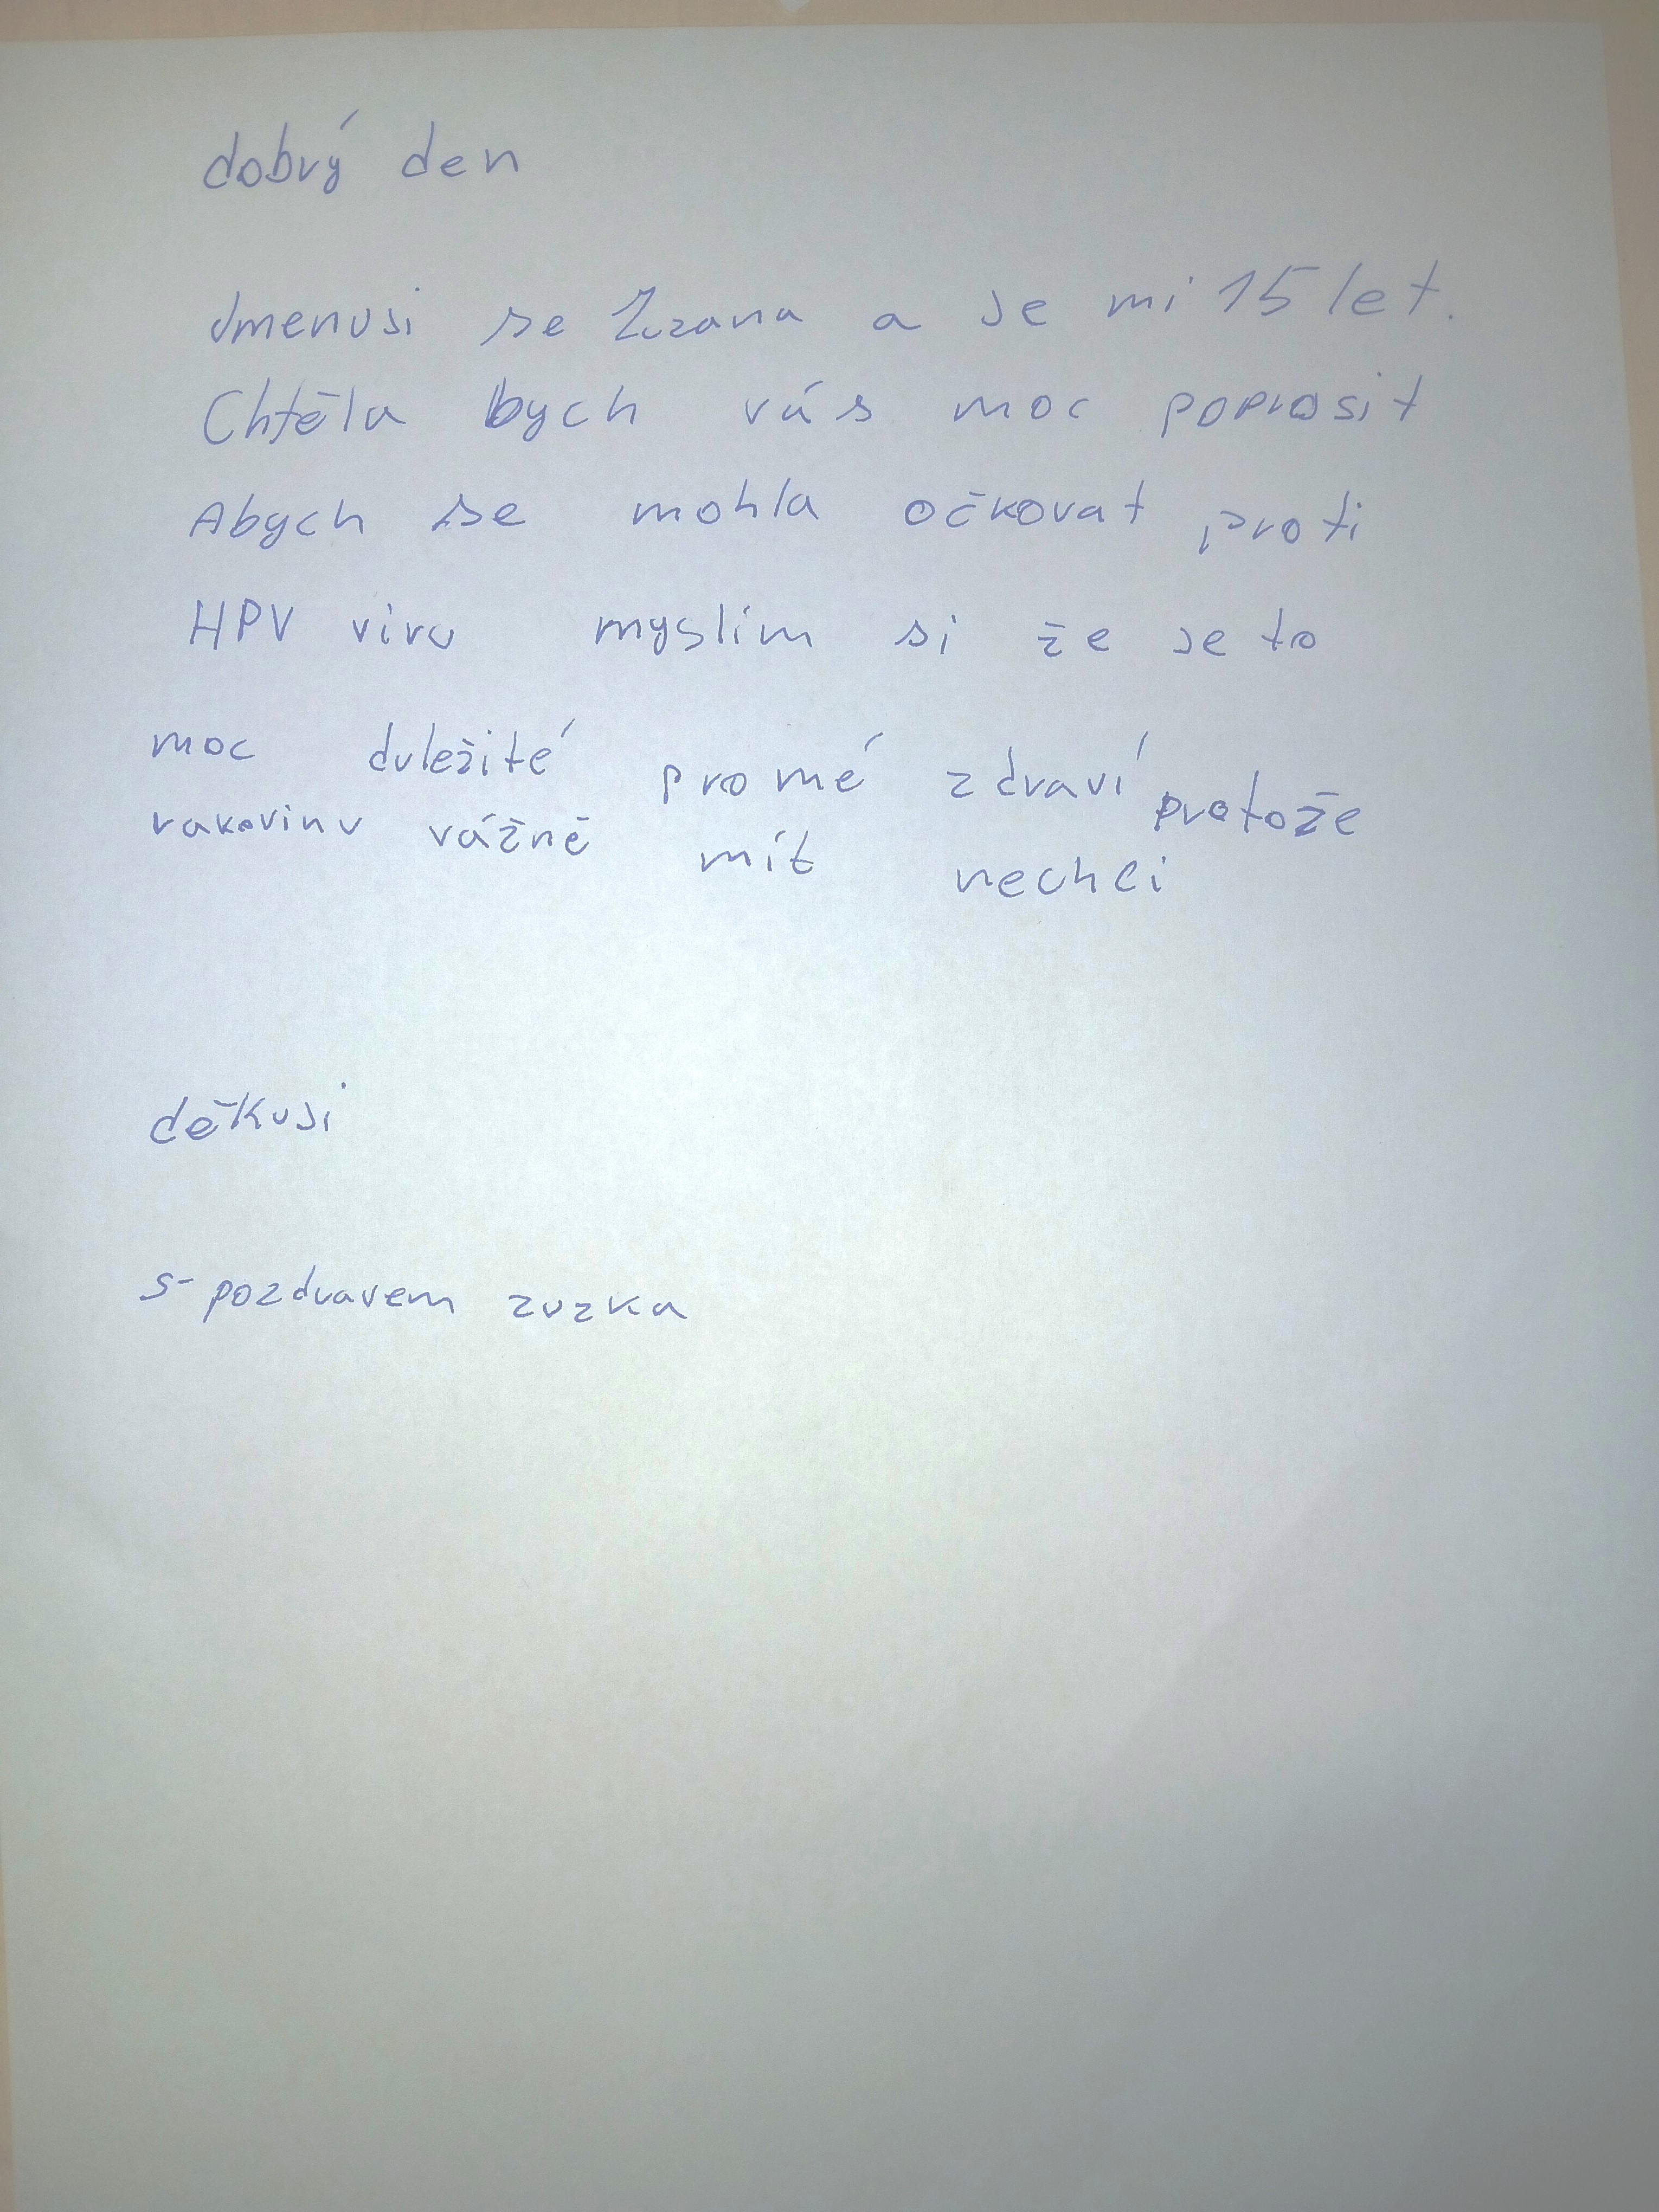 dobrý den
Jmenuji se Zuzana a je mi 15 let.
Chtěla bych vás moc poprosit
Abych se mohla očkovat proti
HPV viru myslím si že je to
moc duležité pro mé zdraví protože
rakovinu vážně mít nechci
děkuji
s-pozdravem zuzka